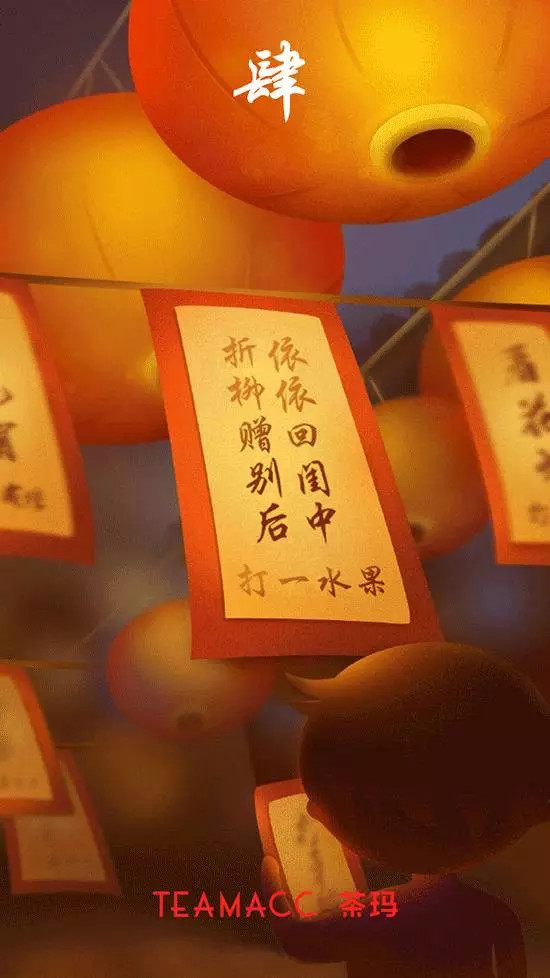 肆
依依回闺中
折柳赠别后
打一水果
TEAMACC 茶玛